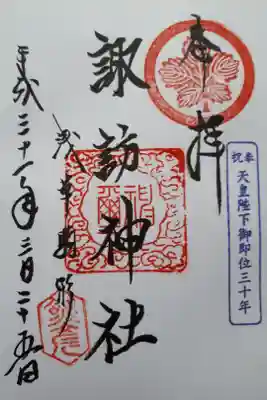 奉拝
奉祝
天皇陛下御即位三十年
諏訪神社
浅草駒形
平成三十一年三月二十五日